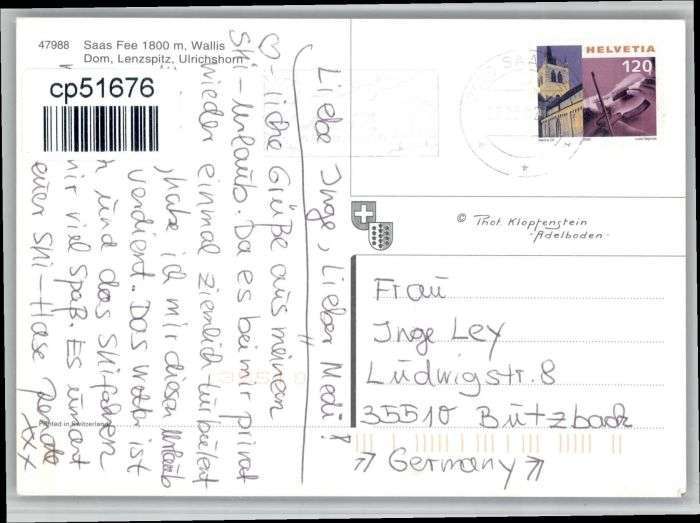 47988 Saas Fee 1800 m, Wallis
Dom, Lenzspitz, Ulrichshorn
cp51676
Liebe Inge, Lieber Nedi!
♡-liche Grüße aus meinem
Ski-Urlaub. Da es bei mir privat
wieder einmal ziemlich turbulent
habe ich mir diesen Urlaub
verdient. Das Wetter ist
und das Skifahren
mir viel Spaß. Es umarmt
euer Ski-Hase
xxx
Printed in Switzerland
HELVETIA
120
SAAS
© Phot. Klopfenstein
-Adelboden-
Frau
Inge Ley
Ludwigstr. 8
35510 Butzbach
→ Germany →